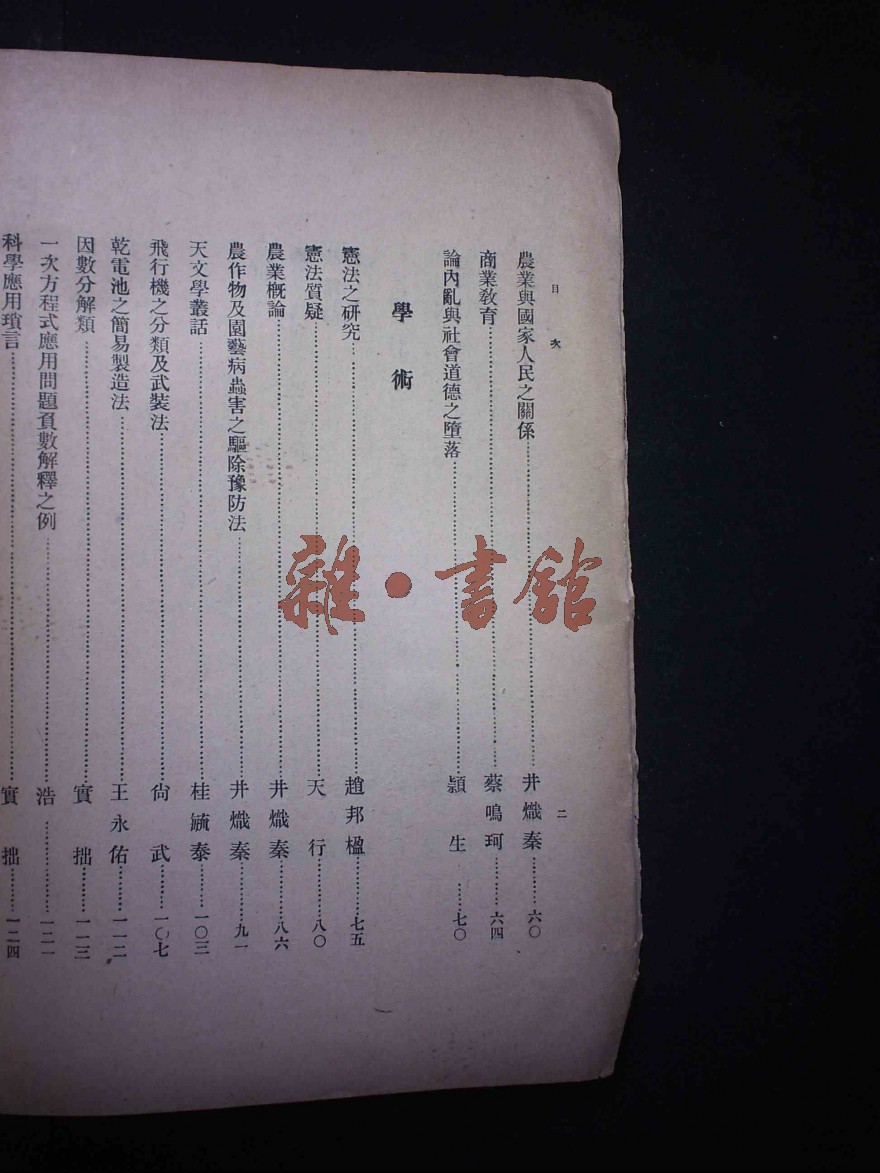 目次
二
農業與國家人民之關係……井熾秦……六〇
商業教育……蔡鳴珂……六四
論內亂與社會道德之墮落……潁生……七〇
學術
憲法之研究……趙邦楹……七五
憲法質疑……天行……八〇
農業概論……井熾秦……八六
農作物及園藝病蟲害之驅除豫防法……井熾秦……九一
天文學叢話……桂毓泰……一〇三
飛行機之分類及武裝法……尙武……一〇七
乾電池之簡易製造法……王永佑……一一二
因數分解類……實拙……一一三
一次方程式應用問題負數解釋之例……浩……一二一
科學應用瑣言……實拙……一二四
雜·書館